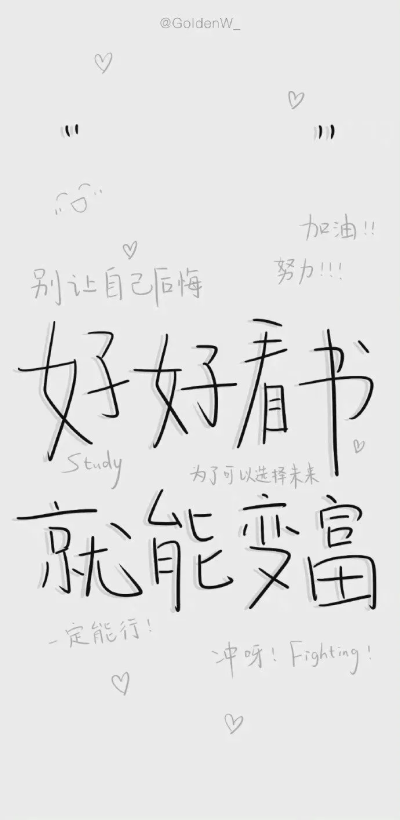 @GoldenW_
" "
加油!!
努力!!!
别让自己后悔
好好看书
Study
为了可以选择未来
就能变富
一定能行!
冲呀! Fighting!